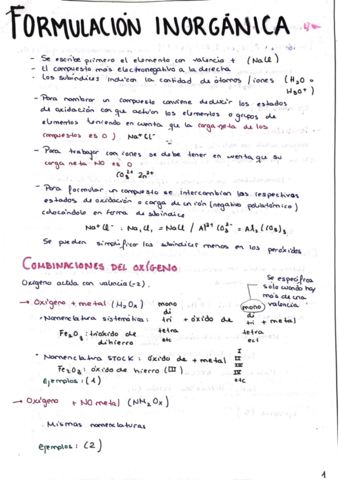 FORMULACIÓN INORGÁNICA
- Se escribe primero el elemento con valencia + (NaCl)
- El compuesto más electronegativo a la derecha
- Los subíndices indican la cantidad de átomos / iones (H2O o
H3O+)
- Para nombrar un compuesto conviene deducir los estados
de oxidación con que actúan los elementos o grupos de
elementos teniendo en cuenta que la carga neta de los
compuestos es 0) Na+Cl-
- Para trabajar con iones se debe tener en cuenta que su
carga neta NO es 0
CO3 2- Zn2+
- Para formular un compuesto se intercambian las respectivas
estados de oxidación o carga de un ión (negativo poliatómico)
colocándolo en forma de subíndice
Na+Cl- : Na1Cl1 = NaCl / Al3+ CO3 2- = Al2(CO3)3
Se pueden simplificar los subíndices menos en los peróxidos
COMBINACIONES DEL OXÍGENO
Oxígeno actúa con valencia (-2).
Se especifica
solo cuando hay
más de una
valencia
→ Oxígeno + metal (M2Ox)
· Nomenclatura sistemática: mono di tri tetra etc + óxido de mono di tri tetra ect + metal
Fe2O3: trióxido de
dihierro
· Nomenclatura STOCK: óxido de + metal I II III IV etc
Fe2O3: óxido de hierro (III)
Ejemplos: (1)
→ Oxígeno + NO metal (NM2Ox)
· Mismas nomenclaturas
Ejemplos: (2)
1